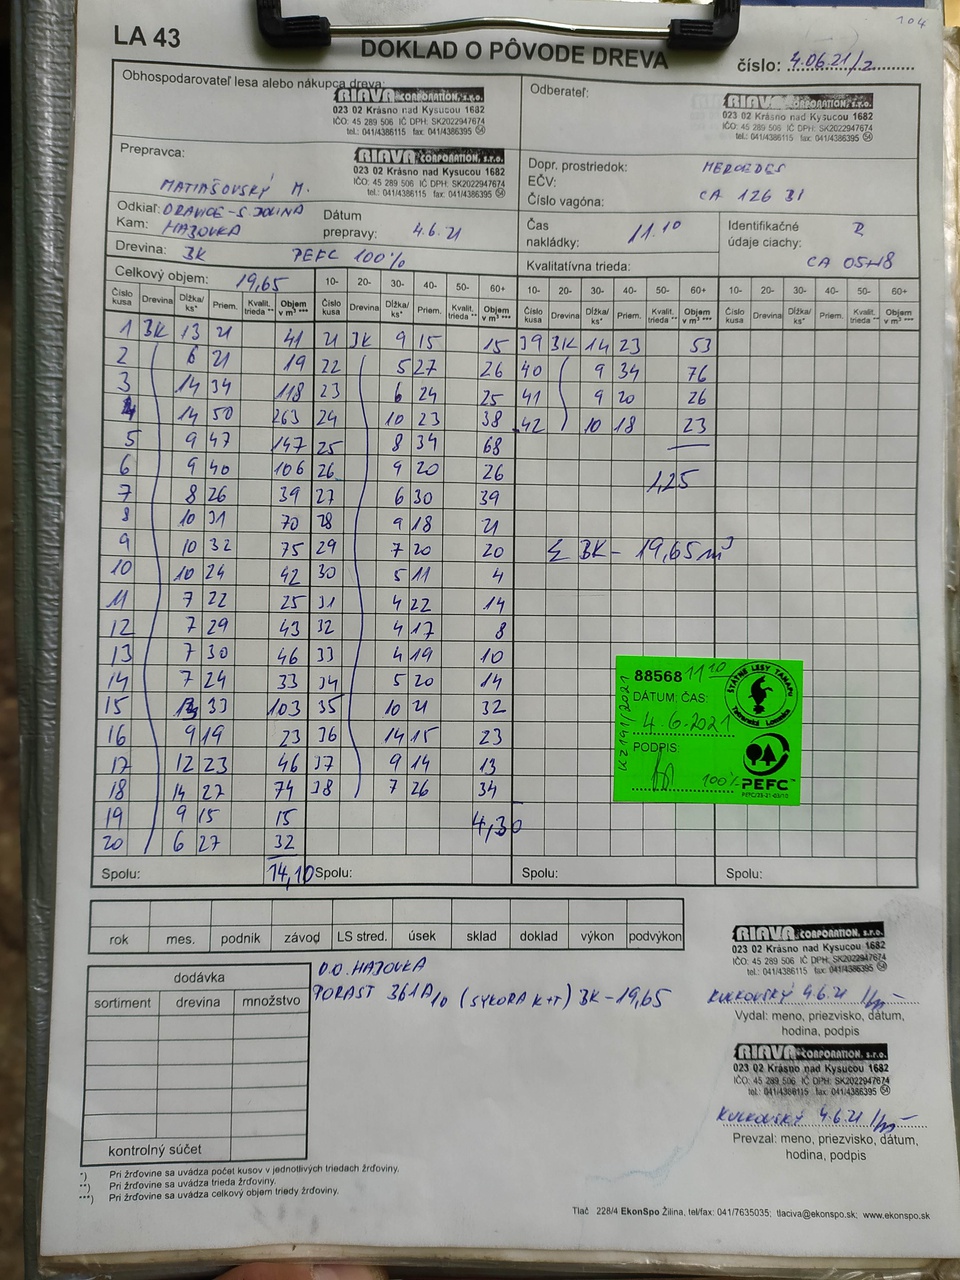 104
LA 43
DOKLAD O PÔVODE DREVA
číslo: 4.06.21/2
Obhospodarovateľ lesa alebo nákupca dreva:
RIAVA CORPORATION, s.r.o.
023 02 Krásno nad Kysucou 1682
IČO: 45 289 506 IČ DPH: SK2022947674
tel.: 041/4386115 fax: 041/4386395 54
Odberateľ:
RIAVA CORPORATION, s.r.o.
023 02 Krásno nad Kysucou 1682
IČO: 45 289 506 IČ DPH: SK2022947674
tel.: 041/4386115 fax: 041/4386395 54
Prepravca:
RIAVA CORPORATION, s.r.o.
023 02 Krásno nad Kysucou 1682
IČO: 45 289 506 IČ DPH: SK2022947674
tel.: 041/4386115 fax: 041/4386395 54
MATIAŠOVSKÝ M.
Dopr. prostriedok: MERCEDES
EČV:
Číslo vagóna: CA 126 BI
Odkiaľ: ORAVICE-S.DOLINA
Kam: HAJOVKA
Dátum
prepravy: 4.6.21
Čas
nakládky: 11.10
Identifikačné
údaje ciachy:
CA 05418
Drevina: BK PEFC 100%
Kvalitatívna trieda:
Celkový objem: 19,65
10- 20- 30- 40- 50- 60+ 10- 20- 30- 40- 50- 60+ 10- 20- 30- 40- 50- 60+
Číslo kusa Drevina Dĺžka/ks* Priem. Kvalit. trieda ** Objem v m³ *** Číslo kusa Drevina Dĺžka/ks* Priem. Kvalit. trieda ** Objem v m³ *** Číslo kusa Drevina Dĺžka/ks* Priem. Kvalit. trieda ** Objem v m³ *** Číslo kusa Drevina Dĺžka/ks* Priem. Kvalit. trieda ** Objem v m³ ***
1 BK 13 21 41 21 BK 9 15 15 39 BK 14 23 53
2 6 21 19 22 5 27 26 40 9 34 76
3 14 34 118 23 6 24 25 41 9 20 26
4 14 50 263 24 10 23 38 42 10 18 23
5 9 47 147 25 8 34 68
6 9 40 106 26 9 20 26 1,25
7 8 26 39 27 6 30 39
8 10 31 70 28 9 18 21
9 10 32 75 29 7 20 20 Σ BK - 19,65m³
10 10 24 42 30 5 11 4
11 7 22 25 31 4 22 14
12 7 29 43 32 4 17 8
13 7 30 46 33 4 19 10
14 7 24 33 34 5 20 14
15 33 103 35 10 21 32
16 9 19 23 36 14 15 23
17 12 23 46 37 9 14 13
18 14 27 74 38 7 26 34
19 9 15 15 4,30
20 6 27 32
Spolu: 14,10 Spolu: Spolu: Spolu:
88568 11 10
DÁTUM: ČAS:
4.6.2021
PODPIS:
100%
KZ191/2021
ŠTÁTNE LESY TANAPU
Tatranská Lomnica
PEFC
rok mes. podnik závod LS stred. úsek sklad doklad výkon podvýkon
dodávka
sortiment drevina množstvo
kontrolný súčet
O.O. HAJOVKA
PORAST 361A/10 (SÝKORA K+T) BK-19,65
RIAVA CORPORATION, s.r.o.
023 02 Krásno nad Kysucou 1682
IČO: 45 289 506 IČ DPH: SK2022947674
tel.: 041/4386115 fax: 041/4386395 54
KULKOVSKÝ 4.6.21
Vydal: meno, priezvisko, dátum,
hodina, podpis
RIAVA CORPORATION, s.r.o.
023 02 Krásno nad Kysucou 1682
IČO: 45 289 506 IČ DPH: SK2022947674
tel.: 041/4386115 fax: 041/4386395 54
KULKOVSKÝ 4.6.21
Prevzal: meno, priezvisko, dátum,
hodina, podpis
*) Pri žrďovine sa uvádza počet kusov v jednotlivých triedach žrďoviny.
**) Pri žrďovine sa uvádza trieda žrďoviny.
***) Pri žrďovine sa uvádza celkový objem triedy žrďoviny.
Tlač 228/4 EkonSpo Žilina, tel/fax: 041/7635035; tlaciva@ekonspo.sk; www.ekonspo.sk